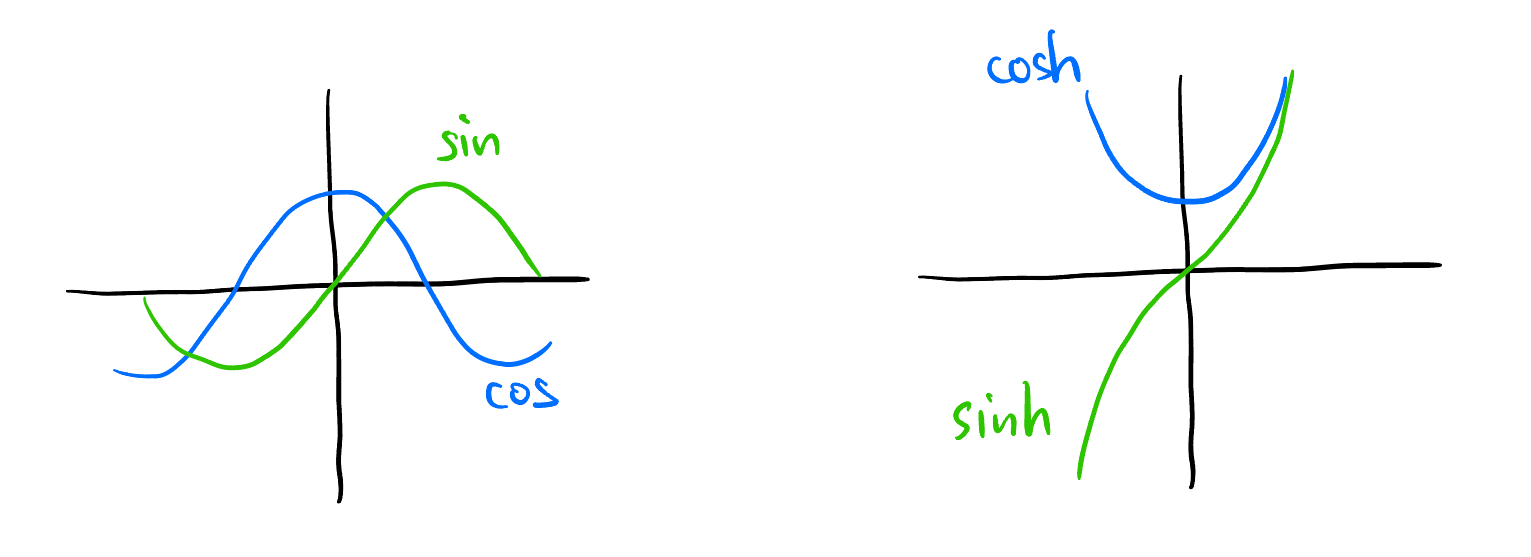 sin
cos
cosh
sinh